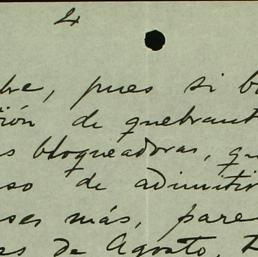 4
bre, pues si b
ción de quebrant
s bloqueadoras, qu
so de admitir
ses más, pare
as de Agosto,